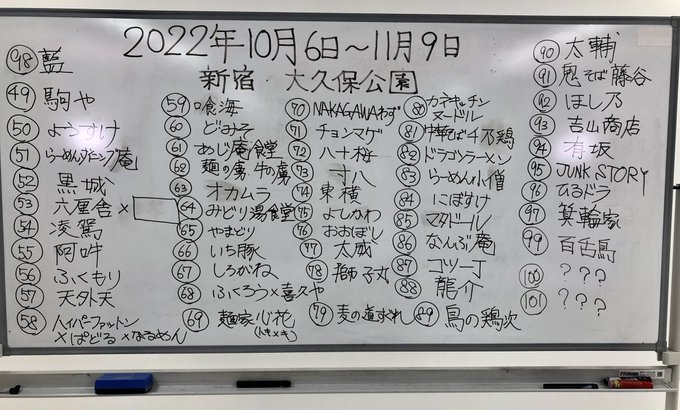 2022年10月6日〜11月9日
新宿 大久保公園
98 藍
49 駒や
50 ようすけ
51 らーめんダイニング庵
52 黒城
53 六厘舎×
54 凌駕
55 阿吽
56 ふくもり
57 天外天
58 ハイパーファットン×ぱどる×なるめん
59 の食海
60 どみそ
61 あじ庵食堂
62 麺の虜 牛の虜
63 オカムラ
64 みどり湯食堂
65 やまどり
66 いち豚
67 しろがね
68 ふくろう×喜久や
69 麺家心花(トキメキ)
70 NAKAGAWAわず
71 チョンマゲ
72 八十桜
73 寸八
74 東横
75 よしかわ
76 おおぼし
77 太威
78 獅子丸
79 麦の道すぐれ
80 カネキッチンヌードル
81 中華そば 千乃鶏
82 ドラゴンラーメン
83 らーめん小僧
84 にぼすけ
85 マタドール
86 なんぶ庵
87 ゴツ一丁
88 龍介
89 鳥の鶏次
90 太輔
91 鬼そば藤谷
92 ほし乃
93 吉山商店
94 有坂
95 JUNK STORY
96 ひるドラ
97 箕輪家
99 百舌鳥
100 ???
101 ???